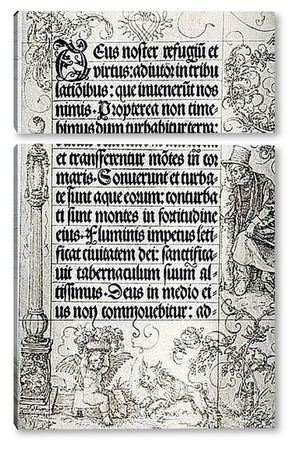 Deus noster refugiū et
virtus: adiutor in tribu
lationibus: que inuenerūt nos
nimis. Propterea non time
bimus dum turbabitur terra:
et transferentur mōtes in cor
maris. Sonuerunt et turba
te sunt aque eorum: conturba
ti sunt montes in fortitudine
eius. Fluminis impetus leti
ficat ciuitatem dei: sanctifica
uit tabernaculum suum al
tissimus. Deus in medio ei
us non commouebitur: ad-